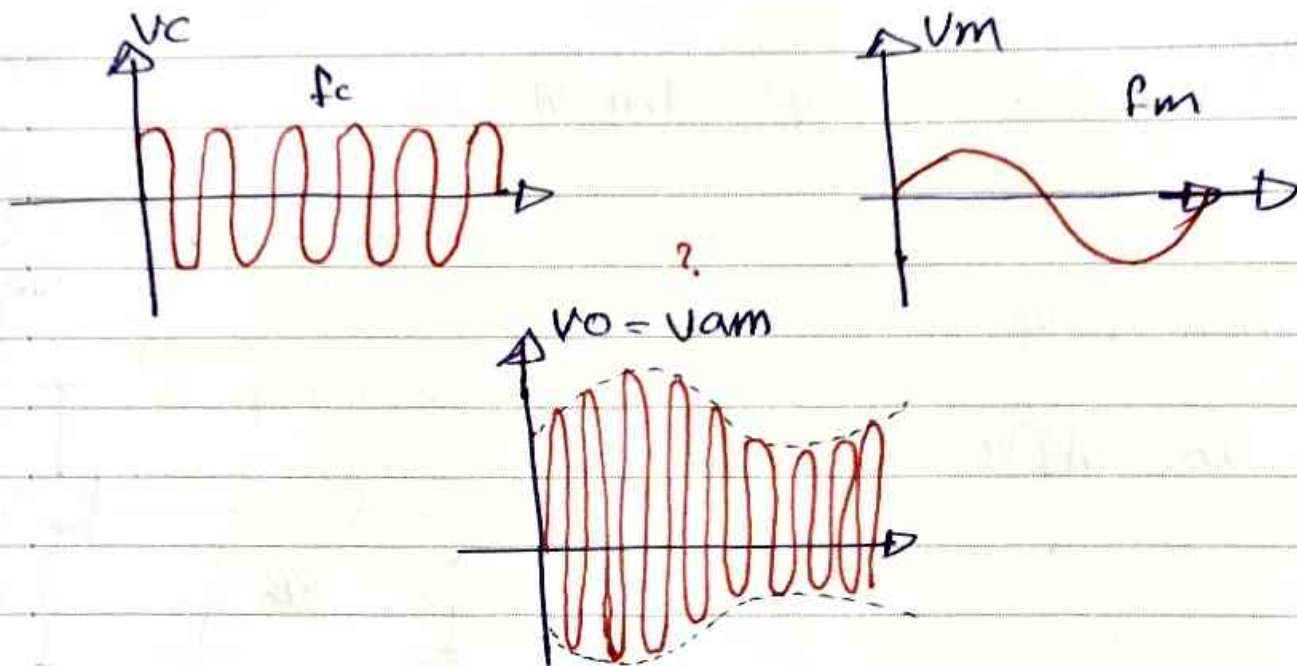 Vc
fc
Vm
fm
?
Vo = Vam